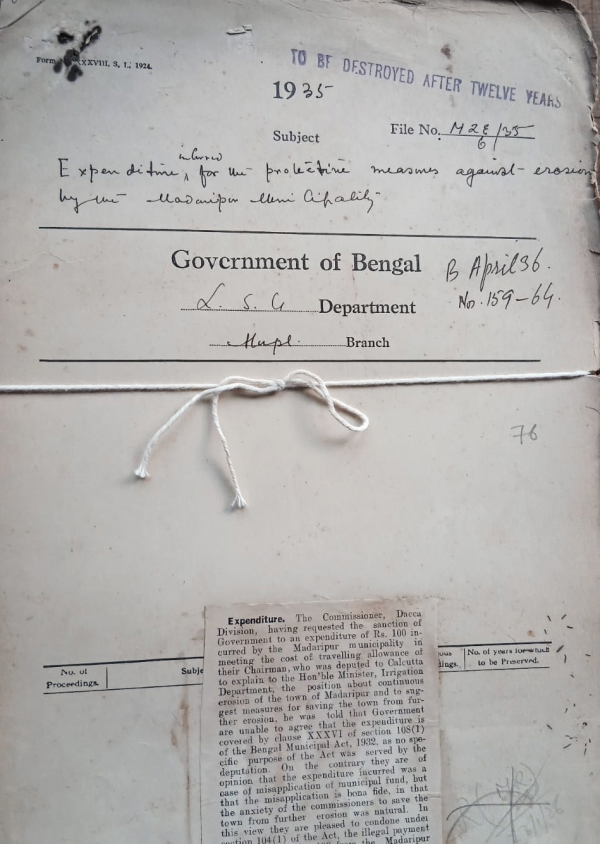 Form XXXVIII. S. I., 1924.
TO BE DESTROYED AFTER TWELVE YEARS
1935
Subject
File No. M2E/35
6
Expenditure incurred for the protective measures against erosion
by the Madaripur Municipality
Government of Bengal
B April 36.
L. S. G Department
No. 159-64.
Mupl. Branch
76
Expenditure. The Commissioner, Dacca
Division, having requested the sanction of
Government to an expenditure of Rs. 100 in-
curred by the Madaripur municipality in
meeting the cost of travelling allowance of
their Chairman, who was deputed to Calcutta
to explain to the Hon'ble Minister, Irrigation
Department, the position about continuous
erosion of the town of Madaripur and to sug-
gest measures for saving the town from fur-
ther erosion, he was told that Government
are unable to agree that the expenditure is
covered by clause XXXVI of section 108(1)
of the Bengal Municipal Act, 1932, as no spe-
cific purpose of the Act was served by the
deputation. On the contrary they are of
opinion that the expenditure incurred was a
case of misapplication of municipal fund, but
that the misapplication is bona fide, in that
the anxiety of the commissioners to save the
town from further erosion was natural. In
this view they are pleased to condone under
section 104(1) of the Act, the illegal payment
from the Madaripur
No. of
Proceedings.
Subje
ous
dings.
No. of years for which
to be Preserved.